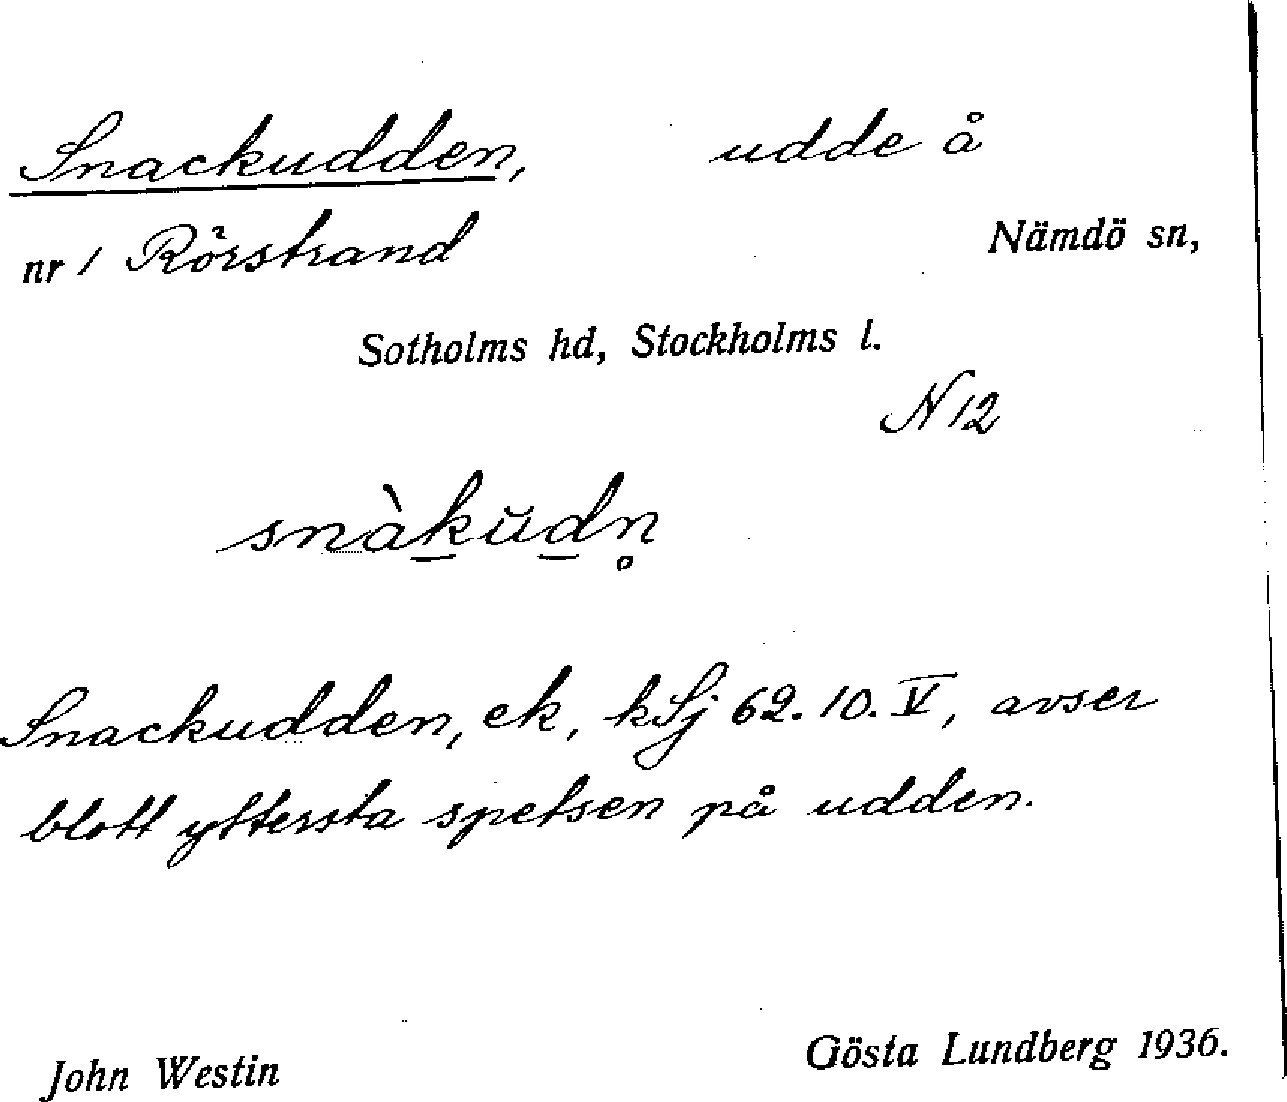 Snackudden, udde å
nr 1 Rörstrand Nämdö sn,
Sotholms hd, Stockholms l.
N 12
snàkŭdn̥
Snackudden, ek, kSj 62.10.V, avser
blott yttersta spetsen på udden.
John Westin Gösta Lundberg 1936.